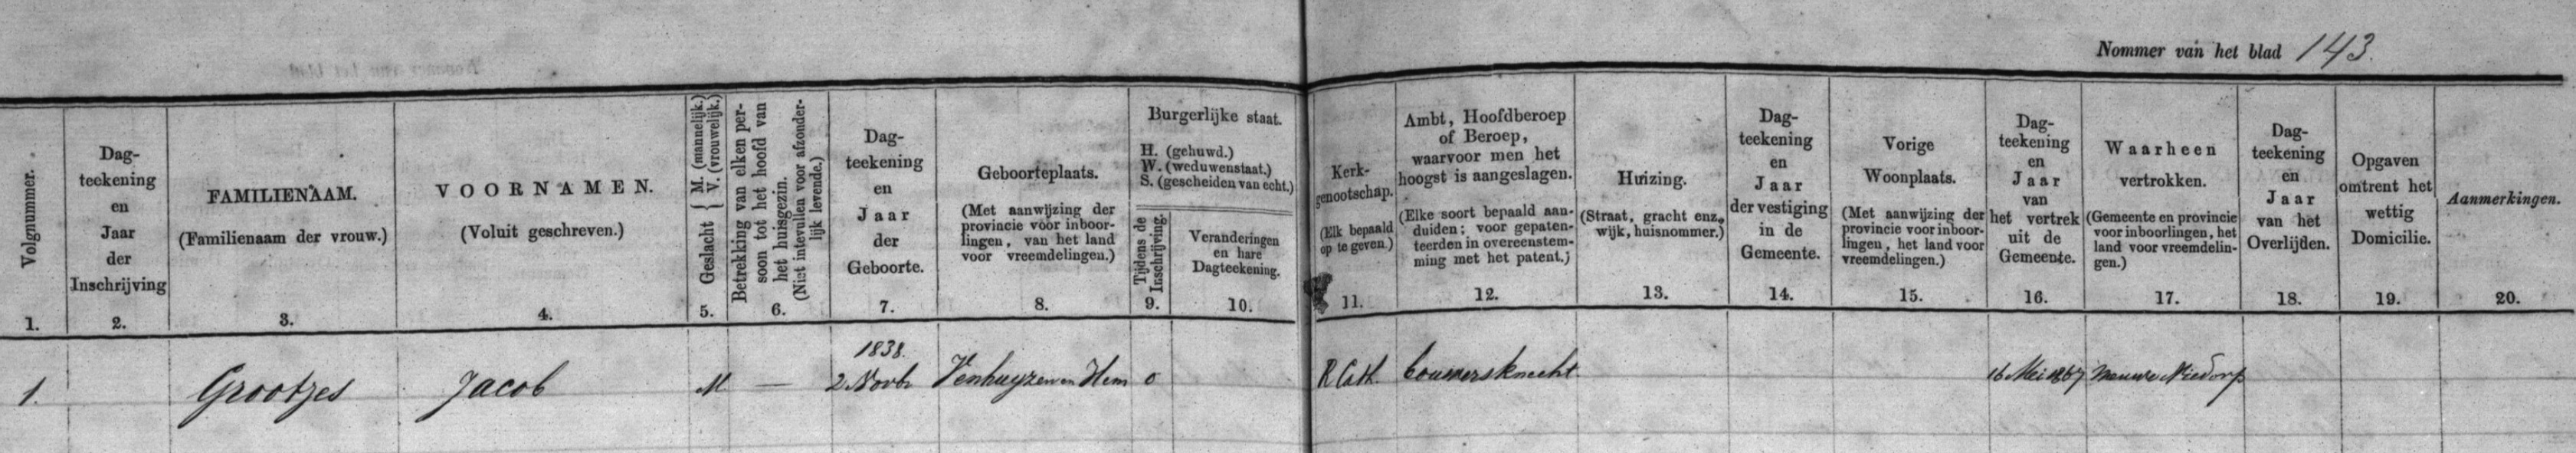 Nommer van het blad 143.
Volgnummer.
1.
Dag-
teekening
en
Jaar
der
Inschrijving
2.
FAMILIENAAM.
(Familienaam der vrouw.)
3.
VOORNAMEN.
(Voluit geschreven.)
4.
Geslacht { M. (mannelijk.)
V. (vrouwelijk.)
5.
Betrekking van elken per-
soon tot het hoofd van
het huisgezin.
(Niet intevullen voor afzonder-
lijk levende.)
6.
Dag-
teekening
en
Jaar
der
Geboorte.
7.
Geboorteplaats.
(Met aanwijzing der
provincie voor inboor-
lingen, van het land
voor vreemdelingen.)
8.
Burgerlijke staat.
H. (gehuwd.)
W. (weduwenstaat.)
S. (gescheiden van echt.)
Tijdens de
Inschrijving.
9.
Veranderingen
en hare
Dagteekening.
10.
Kerk-
genootschap.
(Elk bepaald
op te geven.)
11.
Ambt, Hoofdberoep
of Beroep,
waarvoor men het
hoogst is aangeslagen.
(Elke soort bepaald aan-
duiden; voor gepaten-
teerden in overeenstem-
ming met het patent.)
12.
Huizing.
(Straat, gracht enz.
wijk, huisnommer.)
13.
Dag-
teekening
en
Jaar
der vestiging
in de
Gemeente.
14.
Vorige
Woonplaats.
(Met aanwijzing der
provincie voor inboor-
lingen, het land voor
vreemdelingen.)
15.
Dag-
teekening
en
Jaar
van
het vertrek
uit de
Gemeente.
16.
Waarheen
vertrokken.
(Gemeente en provincie
voor inboorlingen, het
land voor vreemdelin-
gen.)
17.
Dag-
teekening
en
Jaar
van het
Overlijden.
18.
Opgaven
omtrent het
wettig
Domicilie.
19.
Aanmerkingen.
20.
1838.
1. Grootjes Jacob M — 2 Novbr Venhuyzen en Hem o R Cath. bouwersknecht 16 Mei 1867 Nieuwe Niedorp